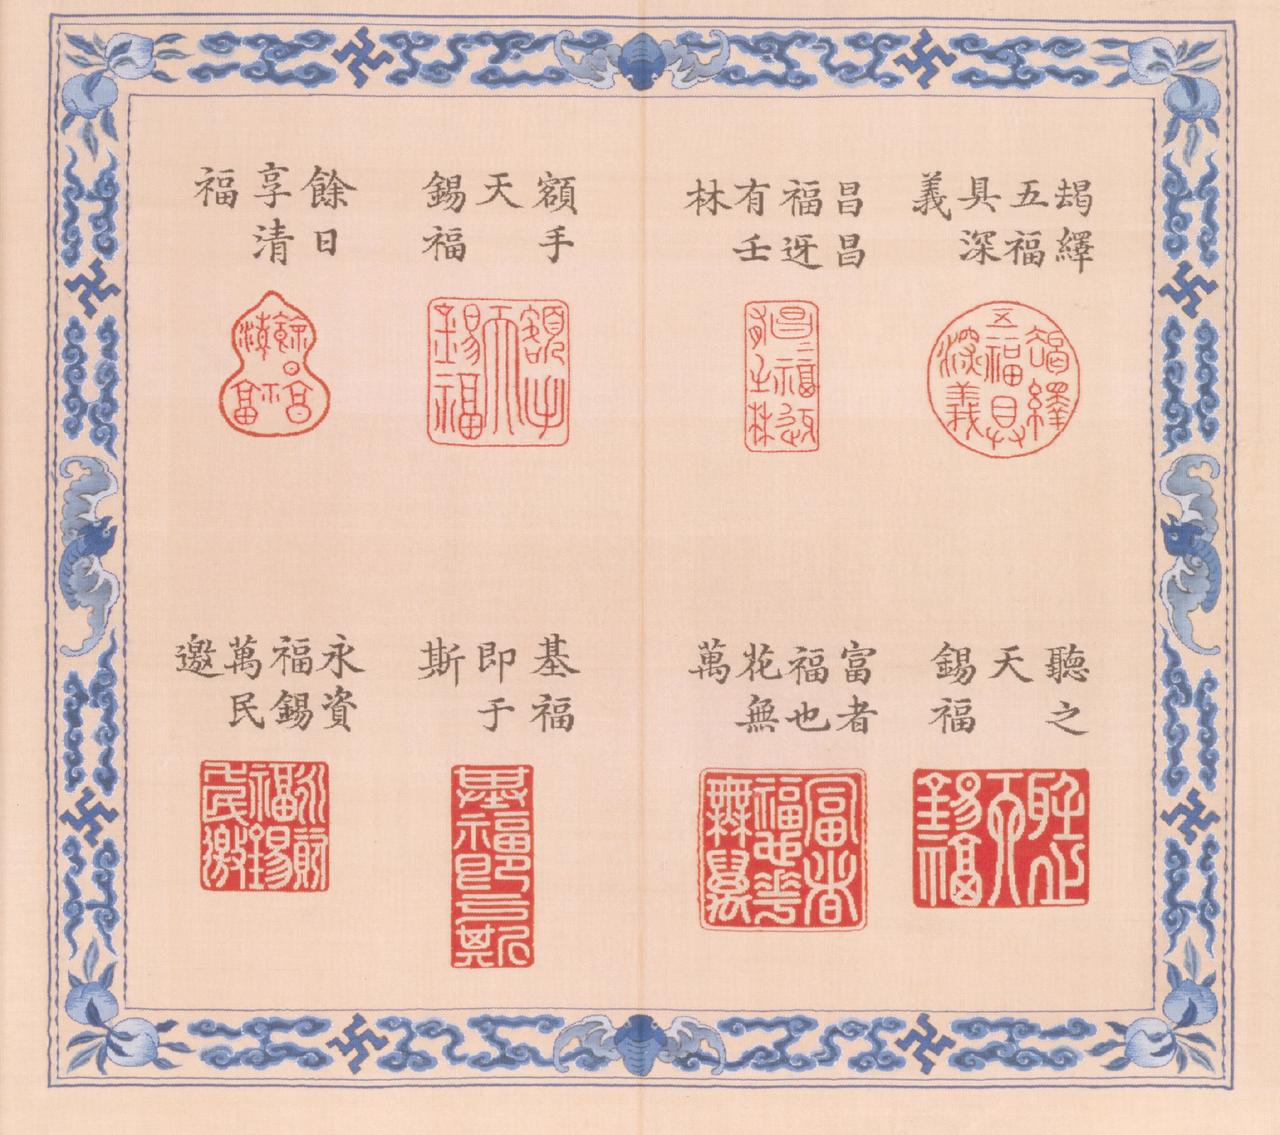 竭繹
五福
具深
義
昌昌
福迓
有壬
林
額手
天
錫福
餘日
享清
福
聽之
天
錫福
富者
福也
花無
萬
基福
即于
斯
永資
福錫
萬民
邀